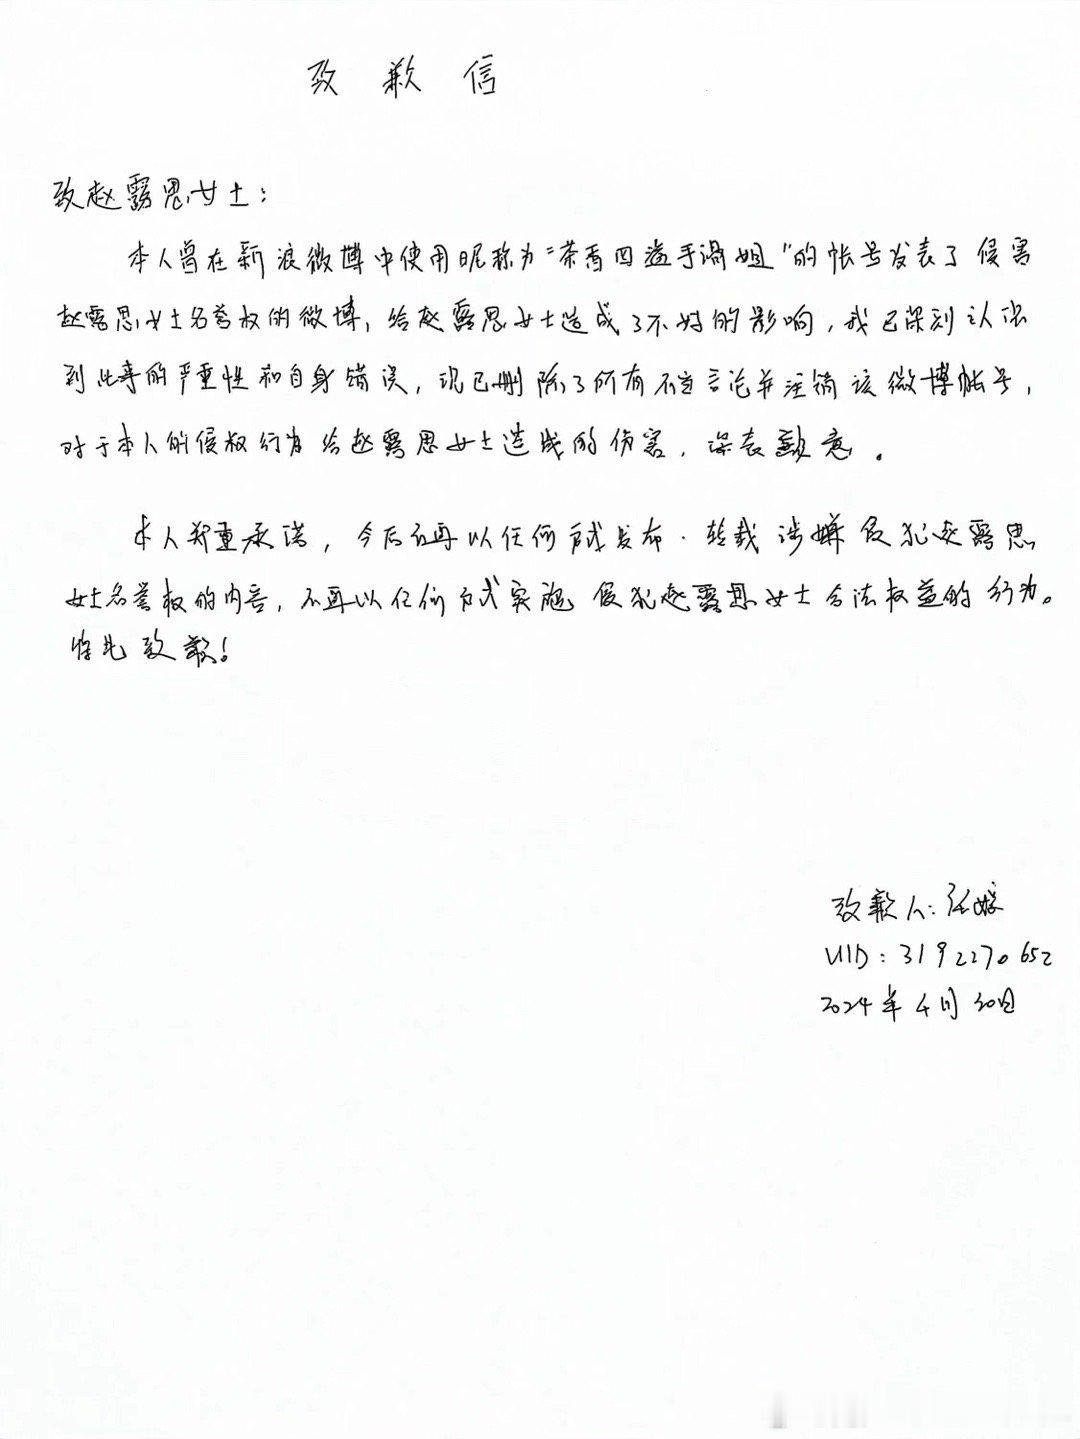 致歉信
致赵露思女士：
本人曾在新浪微博中使用昵称为“茶香四溢手滑姐”的帐号发表了侵害
赵露思女士名誉权的微博，给赵露思女士造成了不好的影响，我已深刻认识
到此事的严重性和自身错误，现已删除了所有不当言论并注销该微博帐号，
对于本人的侵权行为给赵露思女士造成的伤害，深表歉意。
本人郑重承诺，今后不再以任何方式发布、转载涉嫌侵犯赵露思
女士名誉权的内容，不再以任何方式实施侵犯赵露思女士合法权益的行为。
特此致歉！
致歉人：
UID：3192270652
2024年4月30日